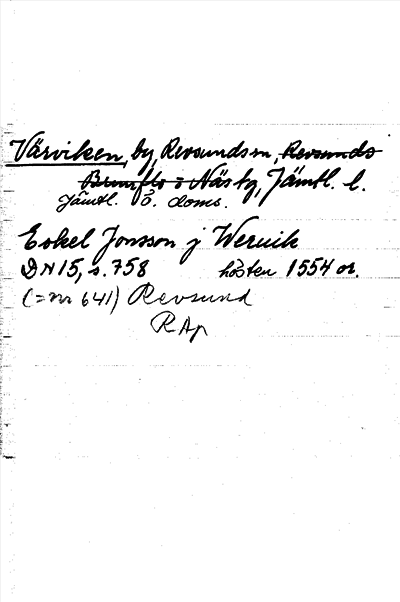 Värviken, by, Revsunds sn, Revsunds
Brunflo o Näs tg, Jämtl. l.
Jämtl. ö. doms.
Eskel Jonsson j Weruik
DN 15, s. 758 hösten 1554 or.
(= nr 641) Revsund
RAp